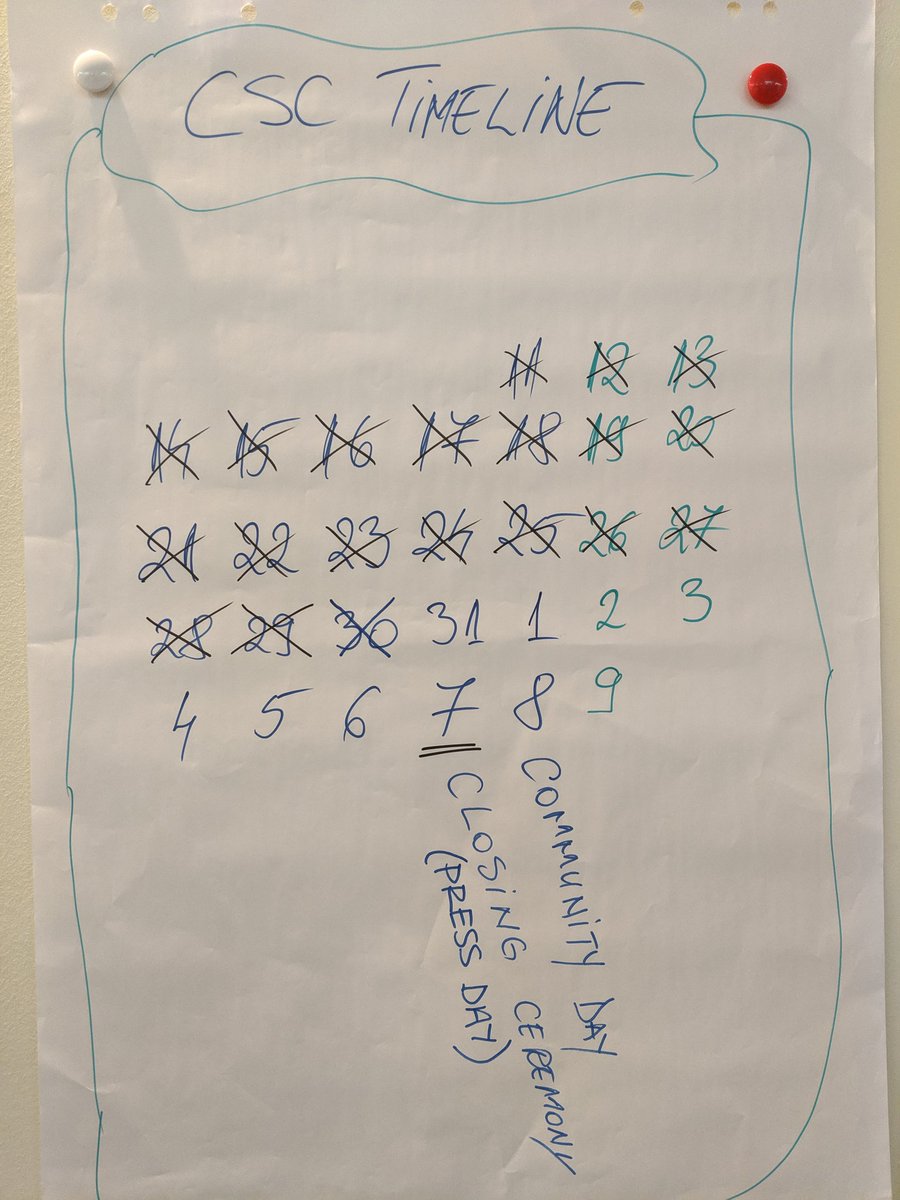 CSC TiMELiNE
11 12 13
14 15 16 17 18 19 20
21 22 23 24 25 26 27
28 29 30 31 1 2 3
4 5 6 7 8 9
COMMUNiTY DAY
CLOSiNG CEREMONY
(PRESS DAY)